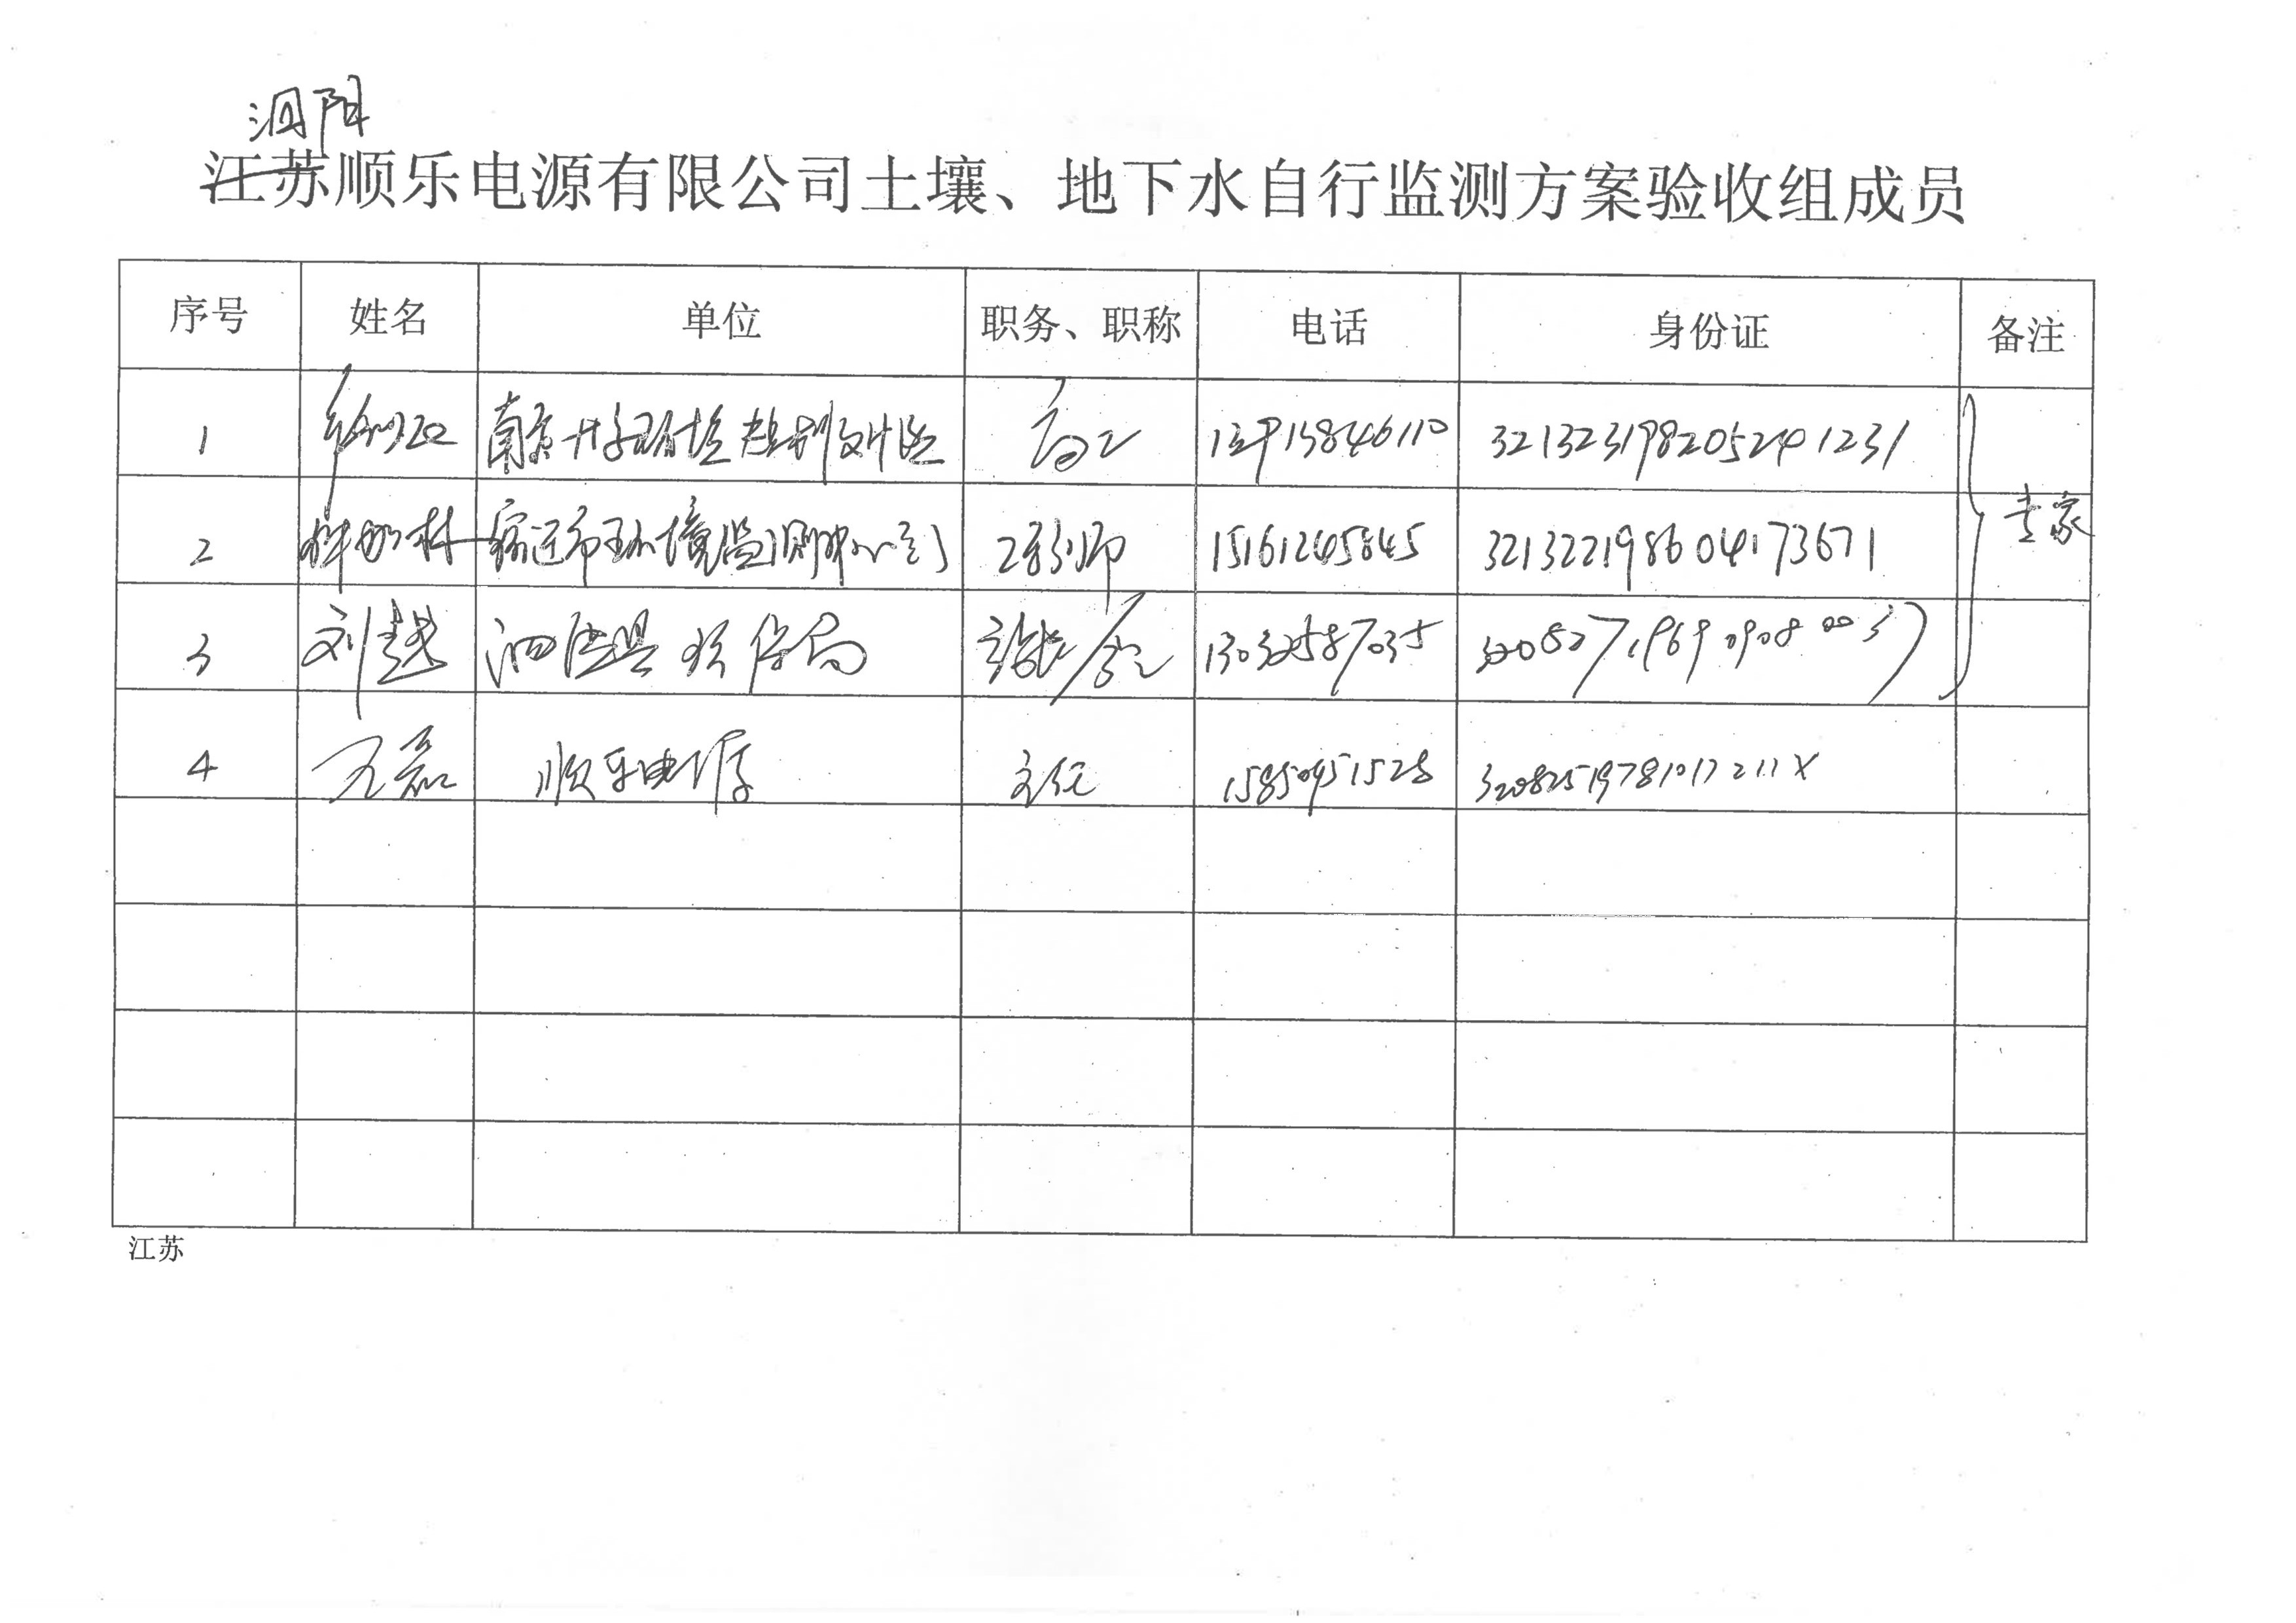 泗阳
江苏顺乐电源有限公司土壤、地下水自行监测方案验收组成员
序号 姓名 单位 职务、职称 电话 身份证 备注
1 南京 环境规划设计院 高工 13913846110 321323198205241231
2 宿迁市环境监测中心 工程师 15161245845 321322198604173671 专家
3 刘 泗洪县环保局 320827196909080037
4 王磊 顺乐电源 主任 15850951528 32082519781017211X
江苏